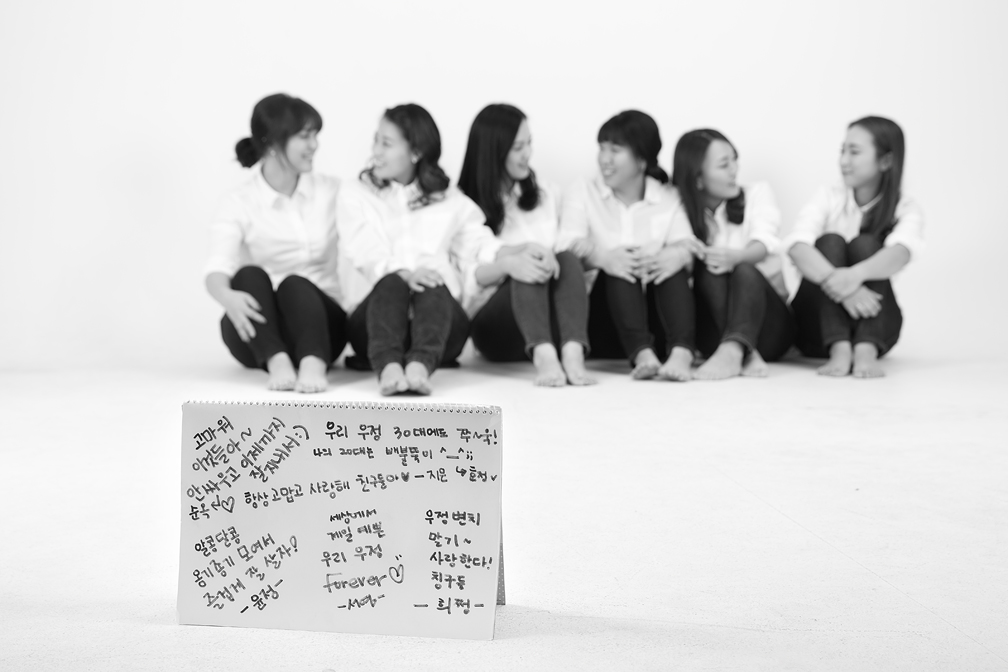 고마워
이것들아~
안싸우고 이제까지
잘지내서 :)
순옥 ♡
우리 우정 30대에도 쭈~욱!
나의 20대는 배불뚝이 ^_^;;
↳효정
항상 고맙고 사랑해 친구들아♥ - 지은
알콩달콩
옹기종기 모여서
즐겁게 잘 살자!
- 윤정 -
세상에서
제일 예쁜
우리 우정
Forever ♡
- 서영 -
우정변치
말기~
사랑한다!
친구들
- 희정 -